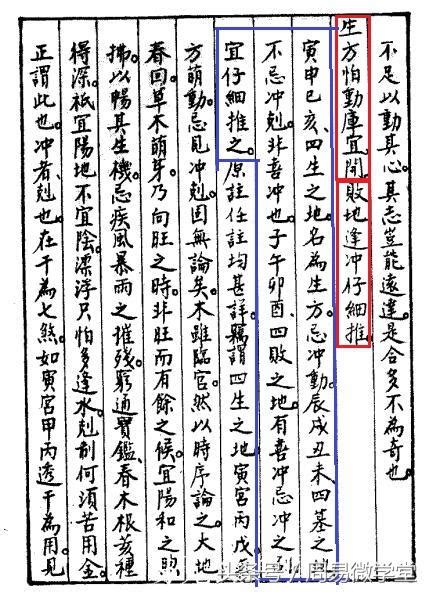 不足以動其心。其志豈能遠達。是合多不為奇也。
生方怕動庫宜開。敗地逢冲仔細推。
寅申巳亥。四生之地。名為生方。忌冲動。辰戌丑未四墓之地
不忌冲剋。非喜冲也。子午卯酉。四敗之地。有喜冲忌冲之別
宜仔細推之。原註任註均甚詳。竊謂四生之地。寅宮丙戊
方萌動。忌見冲剋。固無論矣。木雖臨官。然以時序論之。大地
春回。草木萌芽。乃向旺之時。非旺而有餘之候。宜陽和之煦
拂。以暢其生機。忌疾風暴雨之摧殘。窮通寶鑑。春木根荄種
得深。祇宜陽地不宜陰。漂浮只怕多逢水。剋制何須苦用金。
正謂此也。冲者。剋也。在干為七煞。如寅宮甲丙透干為用。見
头条号/周易微学堂